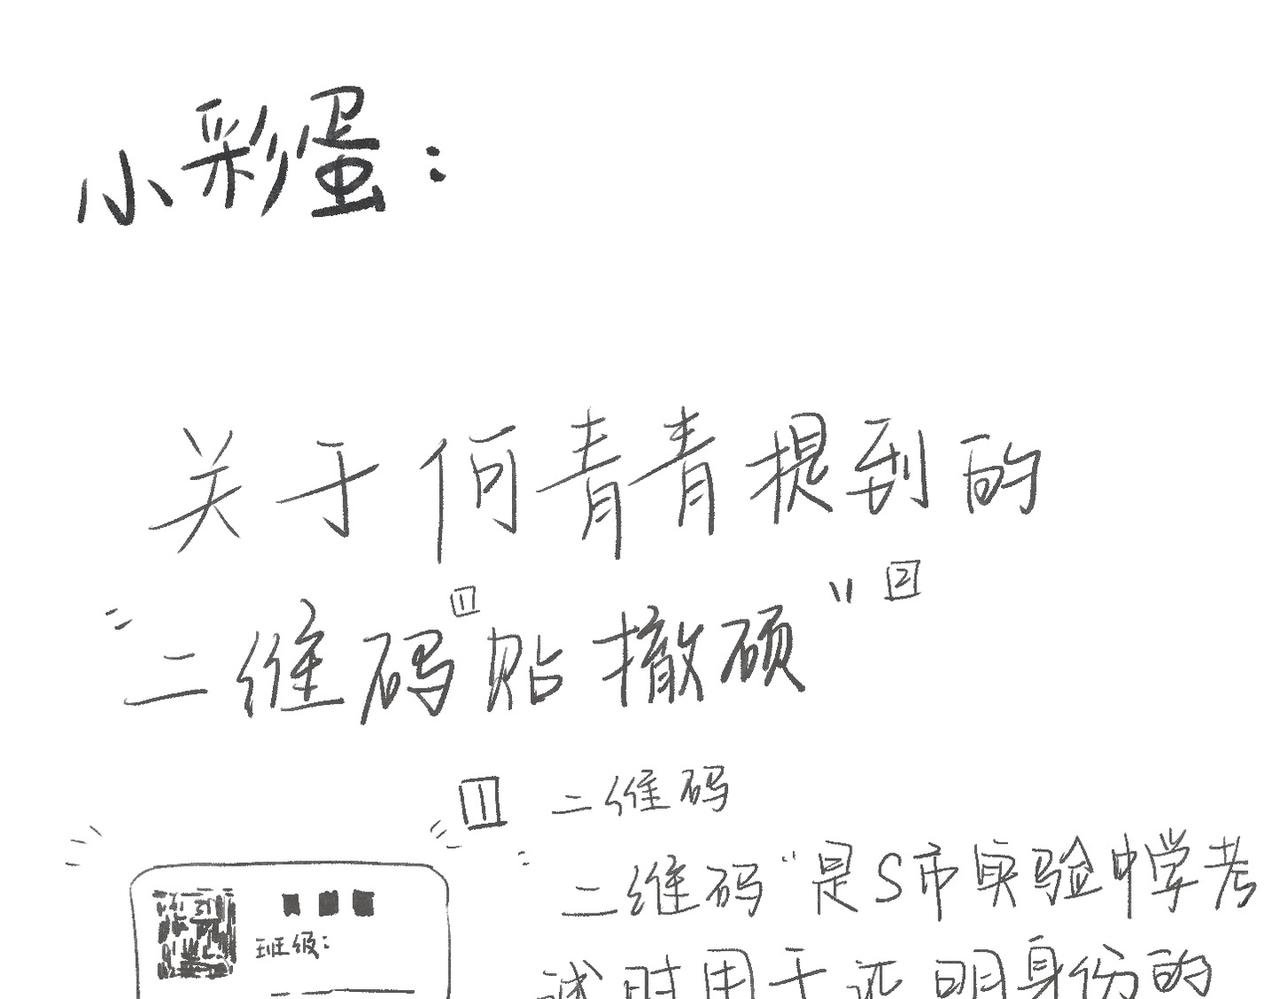 小彩蛋:
关于何青青提到的
"二维码[1]贴撤硕"[2]
[1] 二维码
"二维码"是S市实验中学考
试时用于证明身份的
班级: